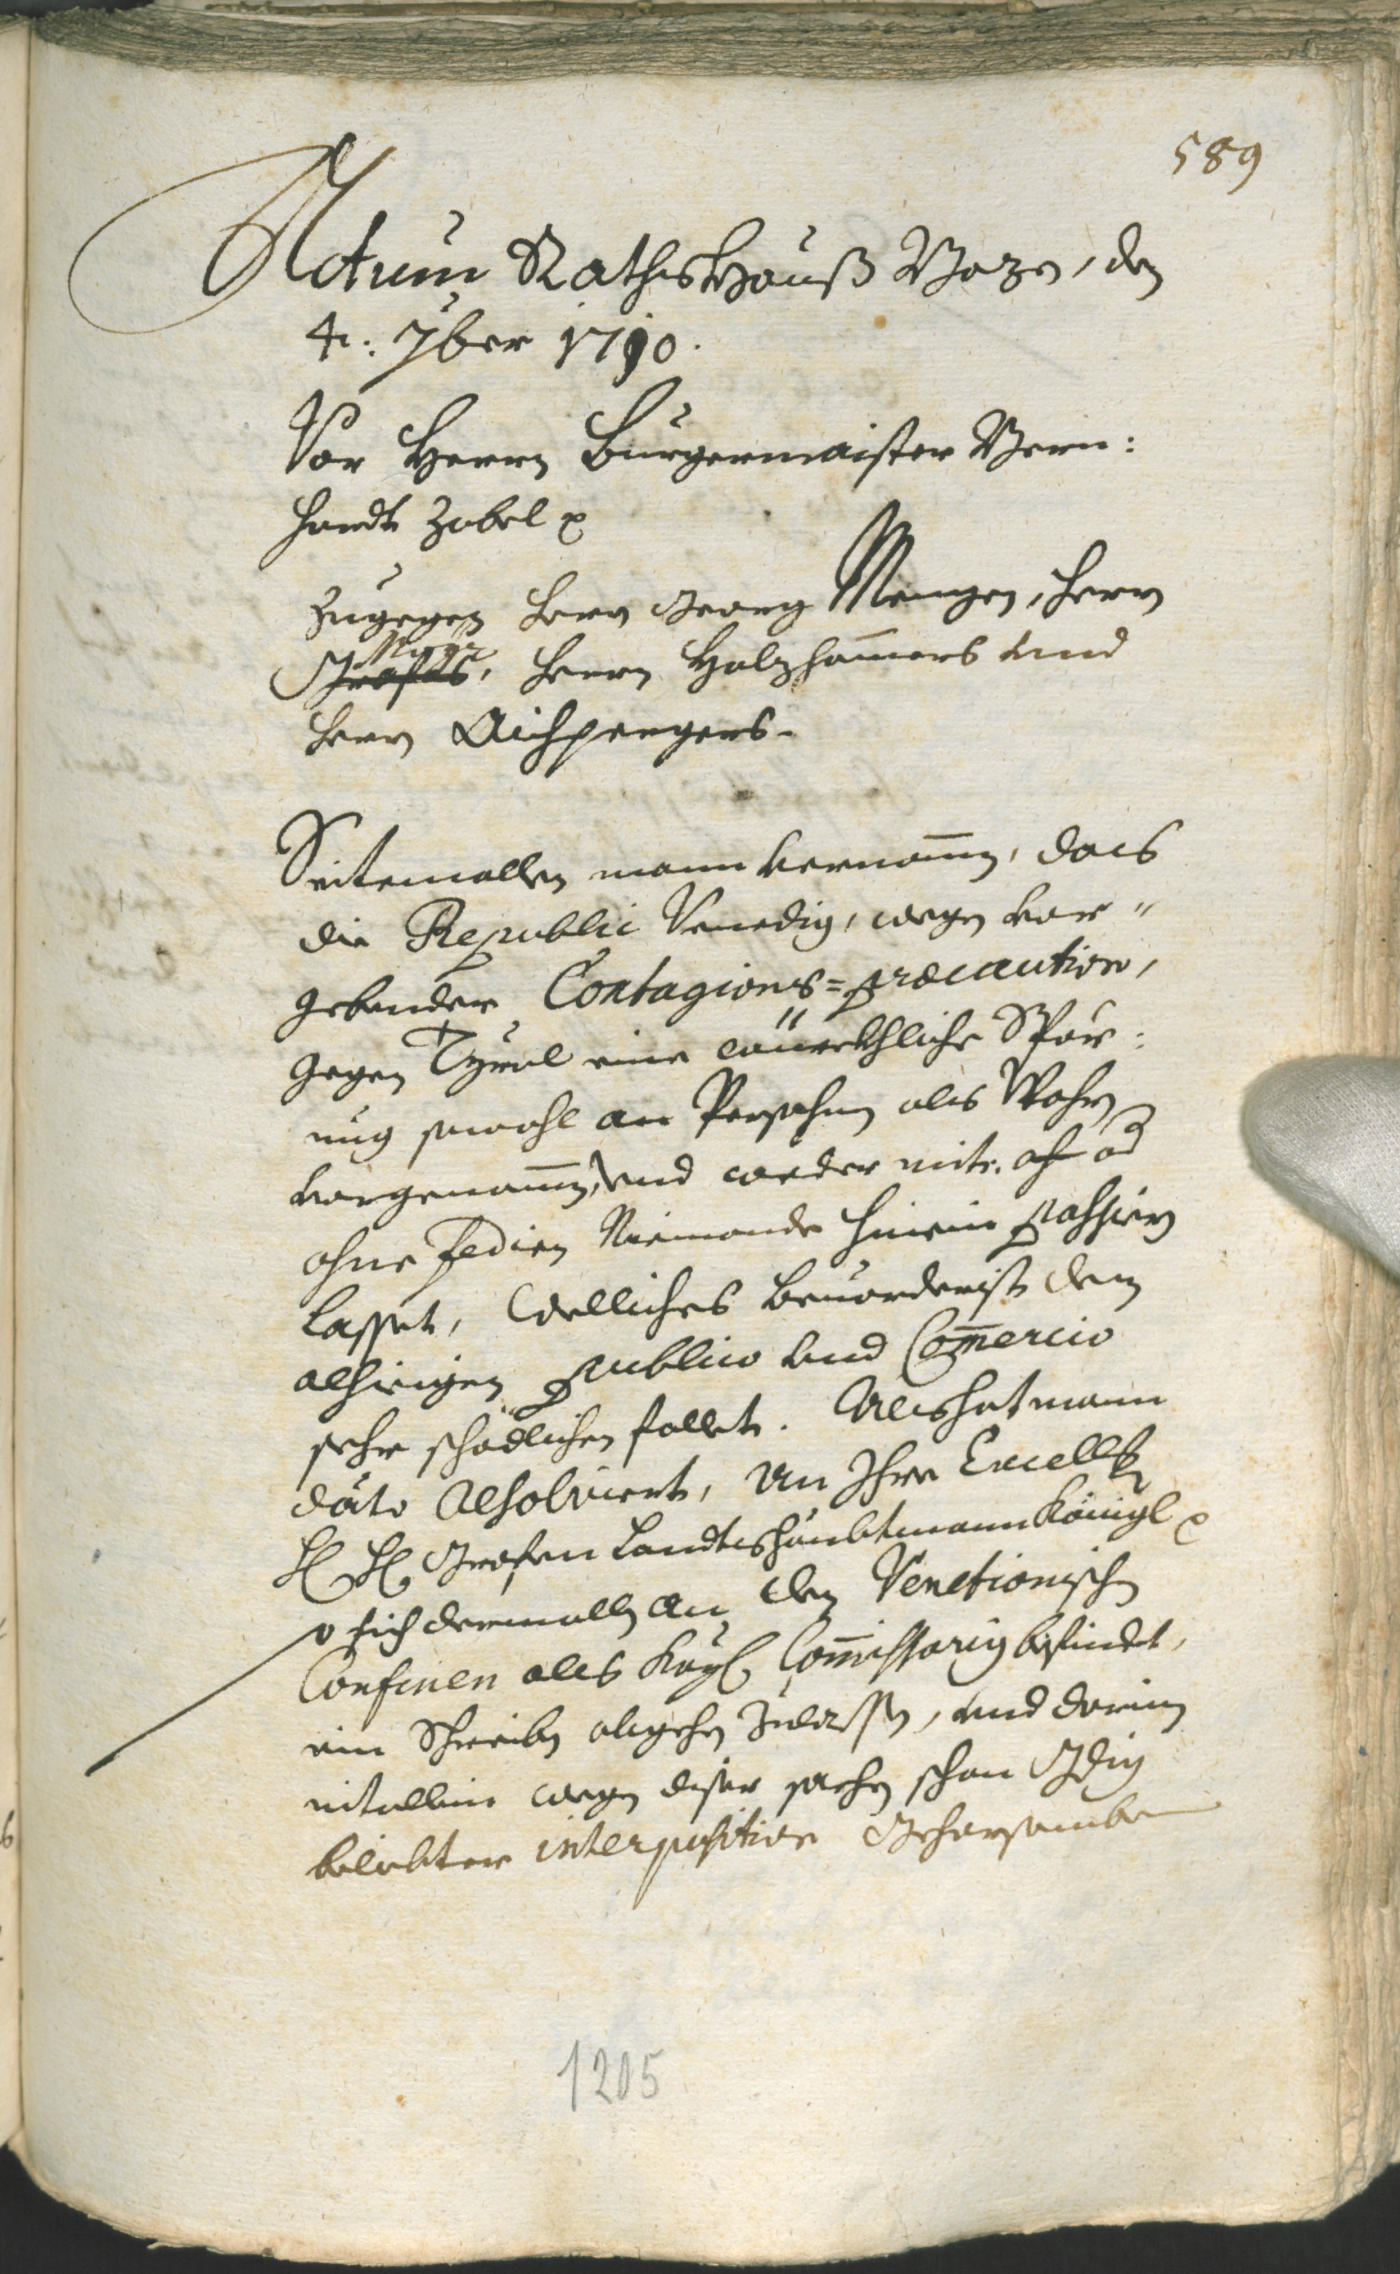 589
Actum Rathshauß Bozn, den
4: 7ber 1710.
Vor Herrn Burgermaister Bern:
hardt Zobel p
Zugegen Herrn Georg Menzen, Herrn
Herrn Holzhamers und
Herrn Aichpergers.
Seitemallen mann vernomen, das
die Republic Venedig, wegen vor"
gebender Contagions=præcaution,
gegen Tyrol eine Spör:
ung sowohl an Persohnen als Wahrn
vorgenomen, und weder mit. oh od
ohne Fedien Niemande hinein passiern
lasset, welliches bevorderist dem
alhieigen publico und Comercio
sehr schädlichen fallet. Als hat mann
dato resolviert, an Ihre Excellz
H H Grafen Landtshaubtmann Königl p
so sich dermalln an den Venetionischn
Confinen als Kayl Commissarig befindet,
ein Schreibn abgehn zulassn, und darinn
nit allein wegen diser sachen schon
beliebter interposition Gehorsamben
1205